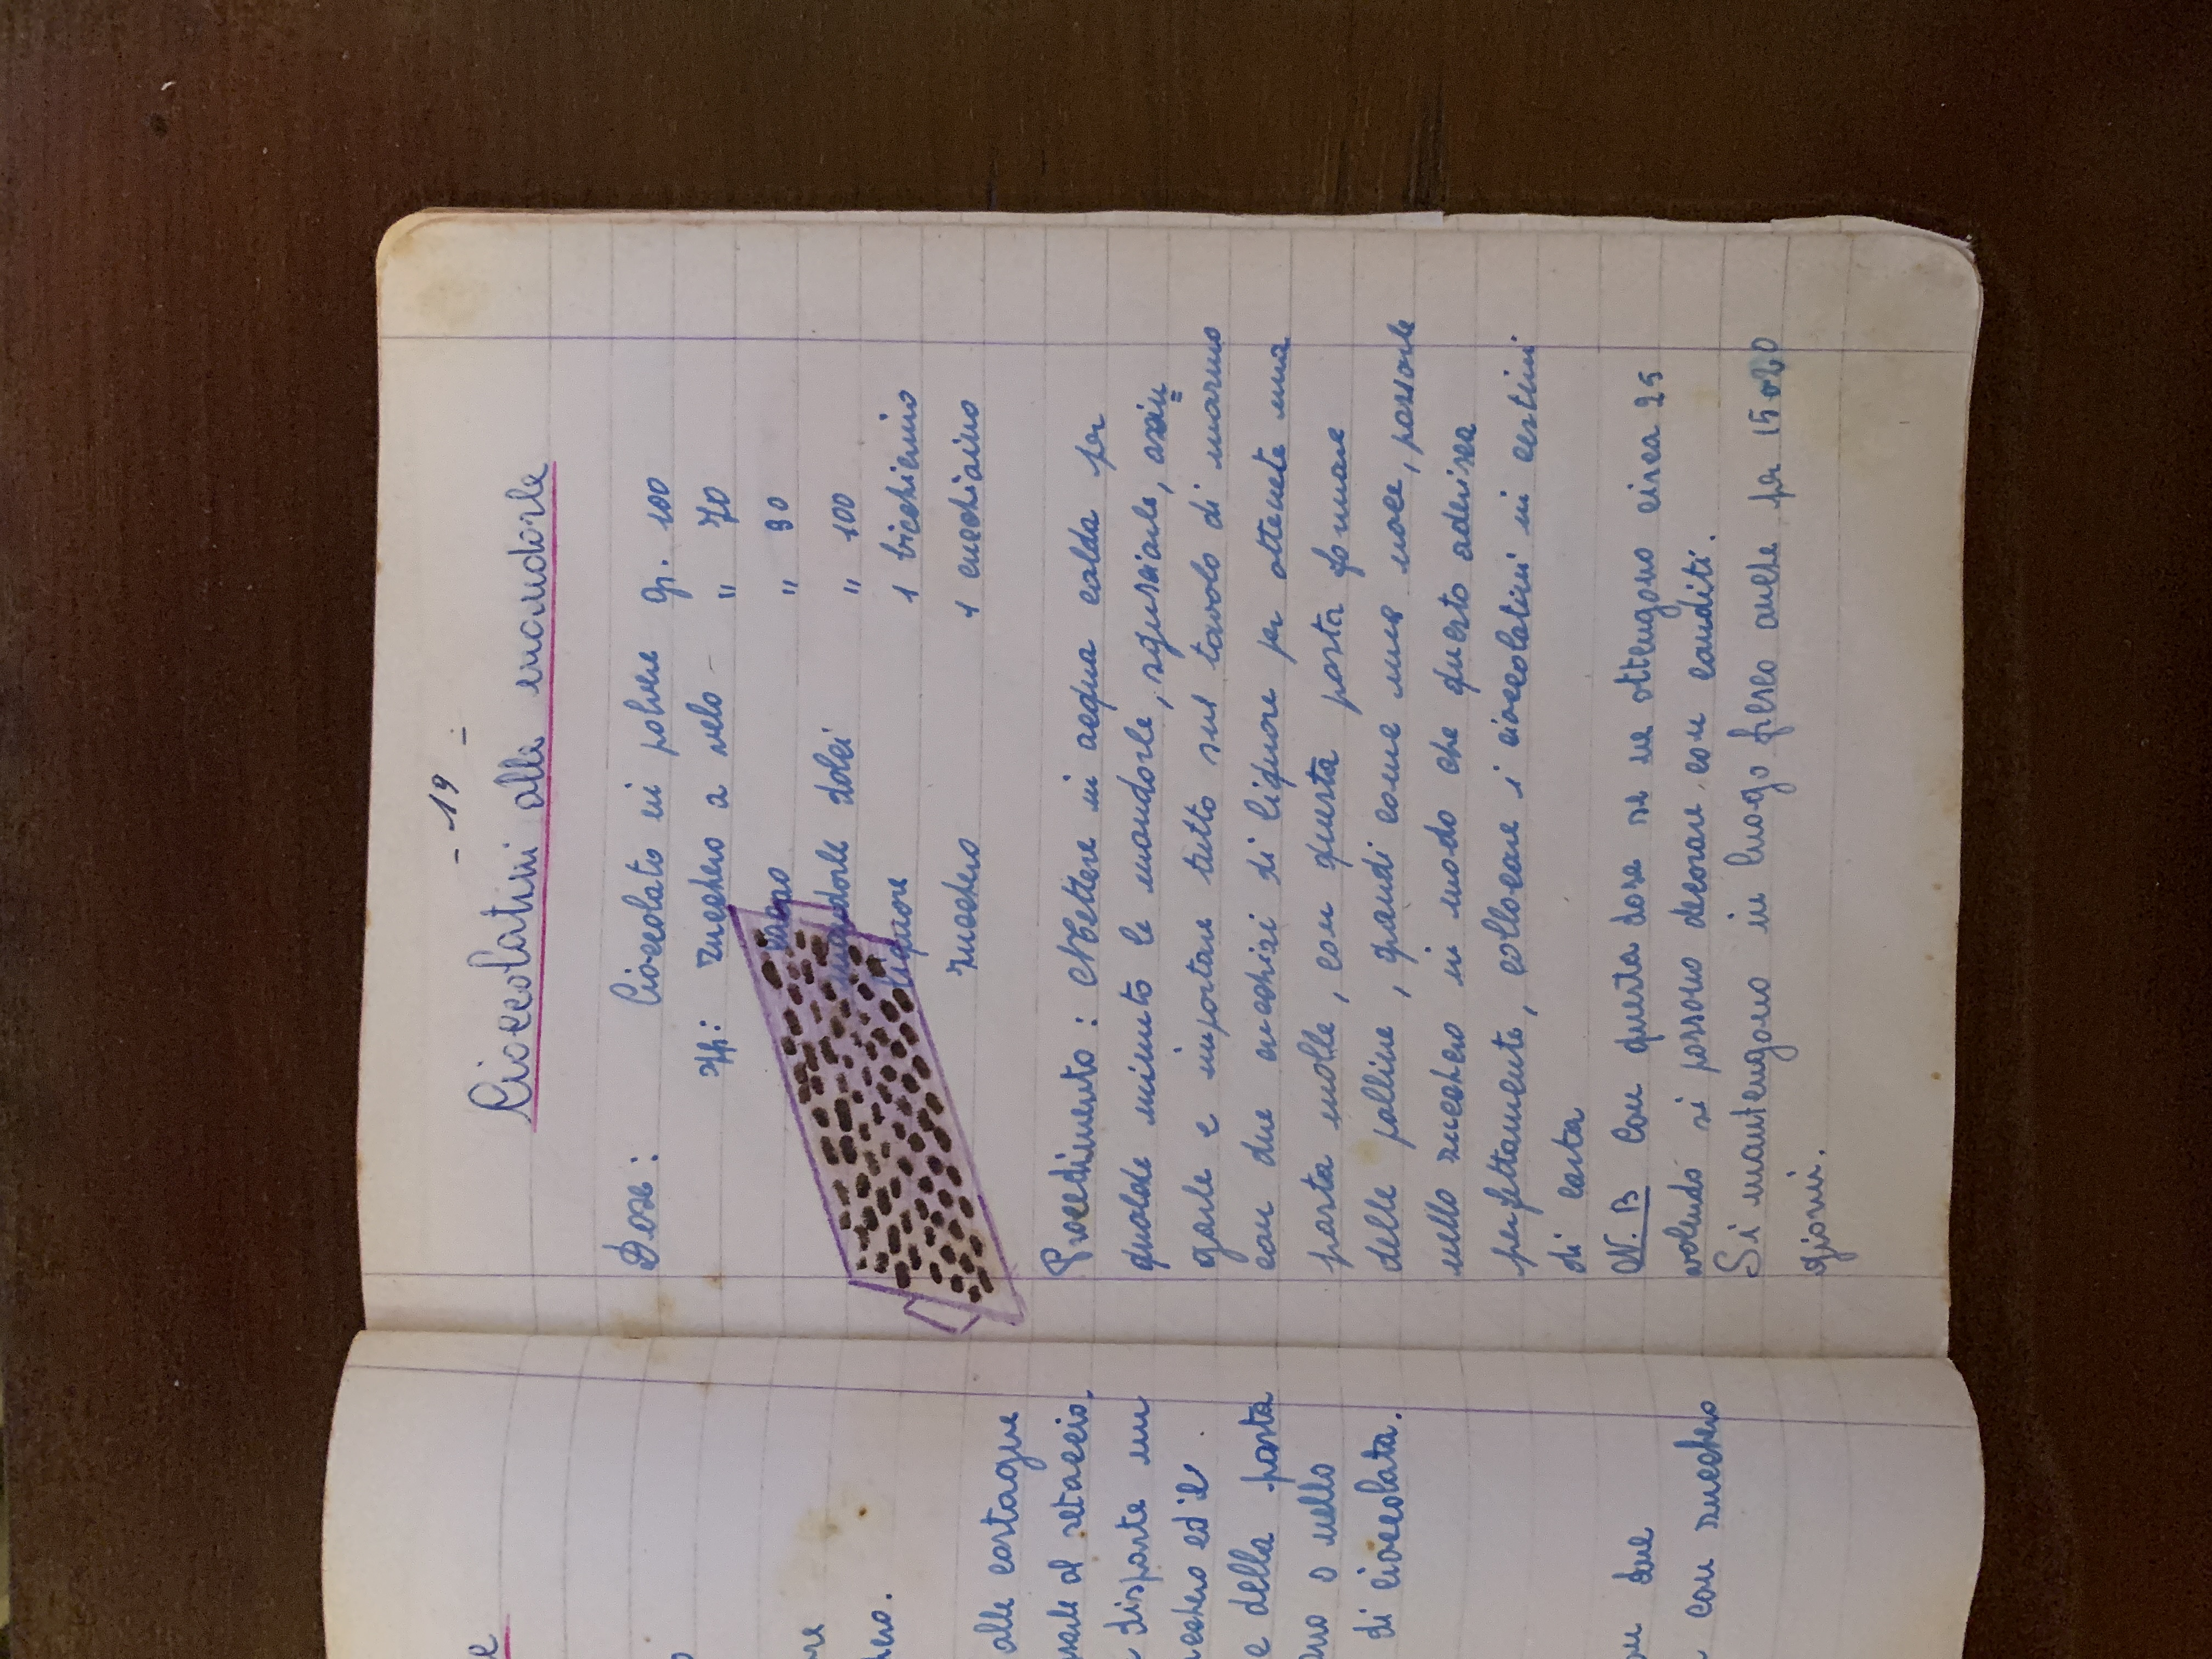 e
re
hero.
alle castagne
sarle al setaccio.
disparte un
cchero ed il
e della pasta
ano o nello
di cioccolata.
due
con zucchero
- 19 -
Cioccolatini alle mandorle
Dose: Cioccolato in polvere gr. 100
zucchero a velo - " 70
cacao " 30
mandorle dolci " 100
liquore 1 bicchierino
zucchero 1 cucchiaino
Procedimento: Mettere in acqua calda per
qualche minuto le mandorle, sgusciarle, asciu=
garle e impastare tutto sul tavolo di marmo
con due cucchiai di liquore per ottenete una
pasta molle, con questa pasta formare
delle palline, grandi come una noce, passarle
nello zucchero in modo che questo aderisca
perfettamente, collocare i cioccolatini in cestini
di carta
N. B Con questa dose se ne ottengono circa 25
volendo si possono decorare con canditi.
Si mantengono in luogo fresco anche per 15 o 20
giorni.